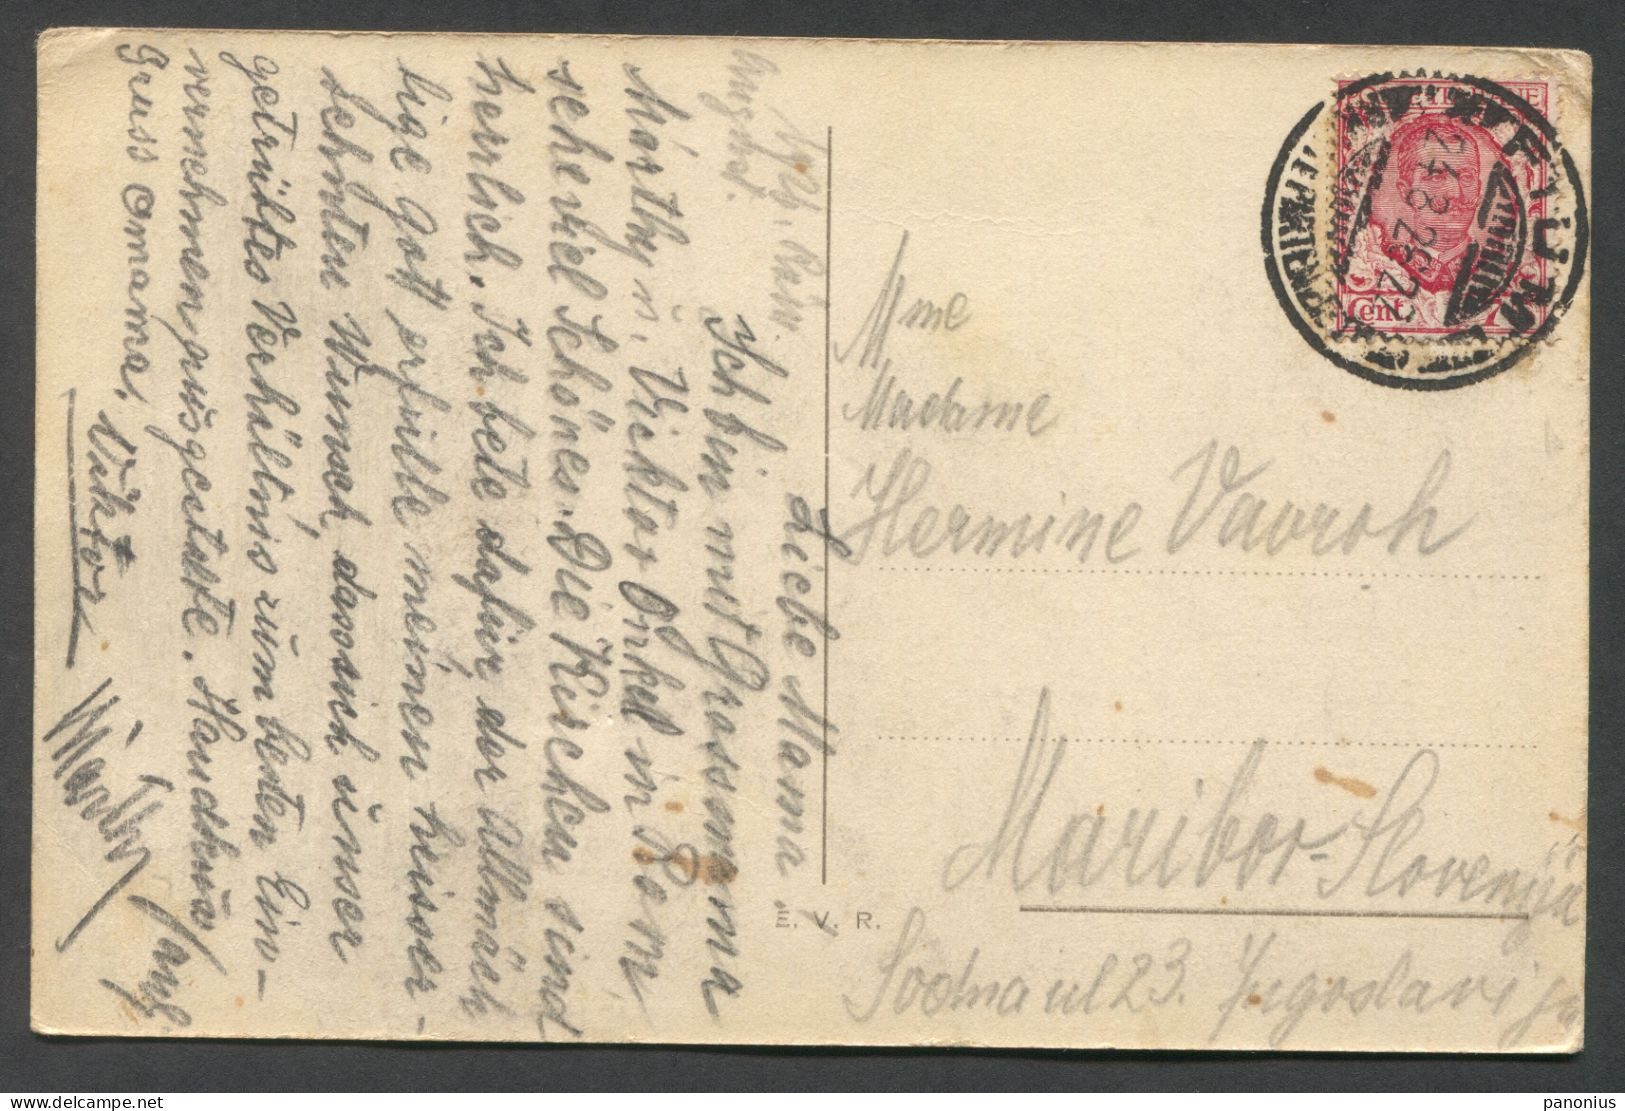 Liebe Mama.
Ich bin mit Grossmama
Márthy ü. Vicktor Onkel in Rom
sehe viel Schönes. Die Kirchen sind
herrlich. Ich bete dafür der Allmäch
tige Gott erfülle meinen heisser-
sehnten Wunsch, dass sich ünser
getrübtes Verhältnis züm besten Ein-
vernehmen, aüsgestalte. Handküss
Gruss Omama.
Viktor
Mme
Madame
Hermine Vavroh
Maribor-Slovenija
Sodna ul 23. Jugoslavija
E. V. R.
FIUME
Cent.
panonius